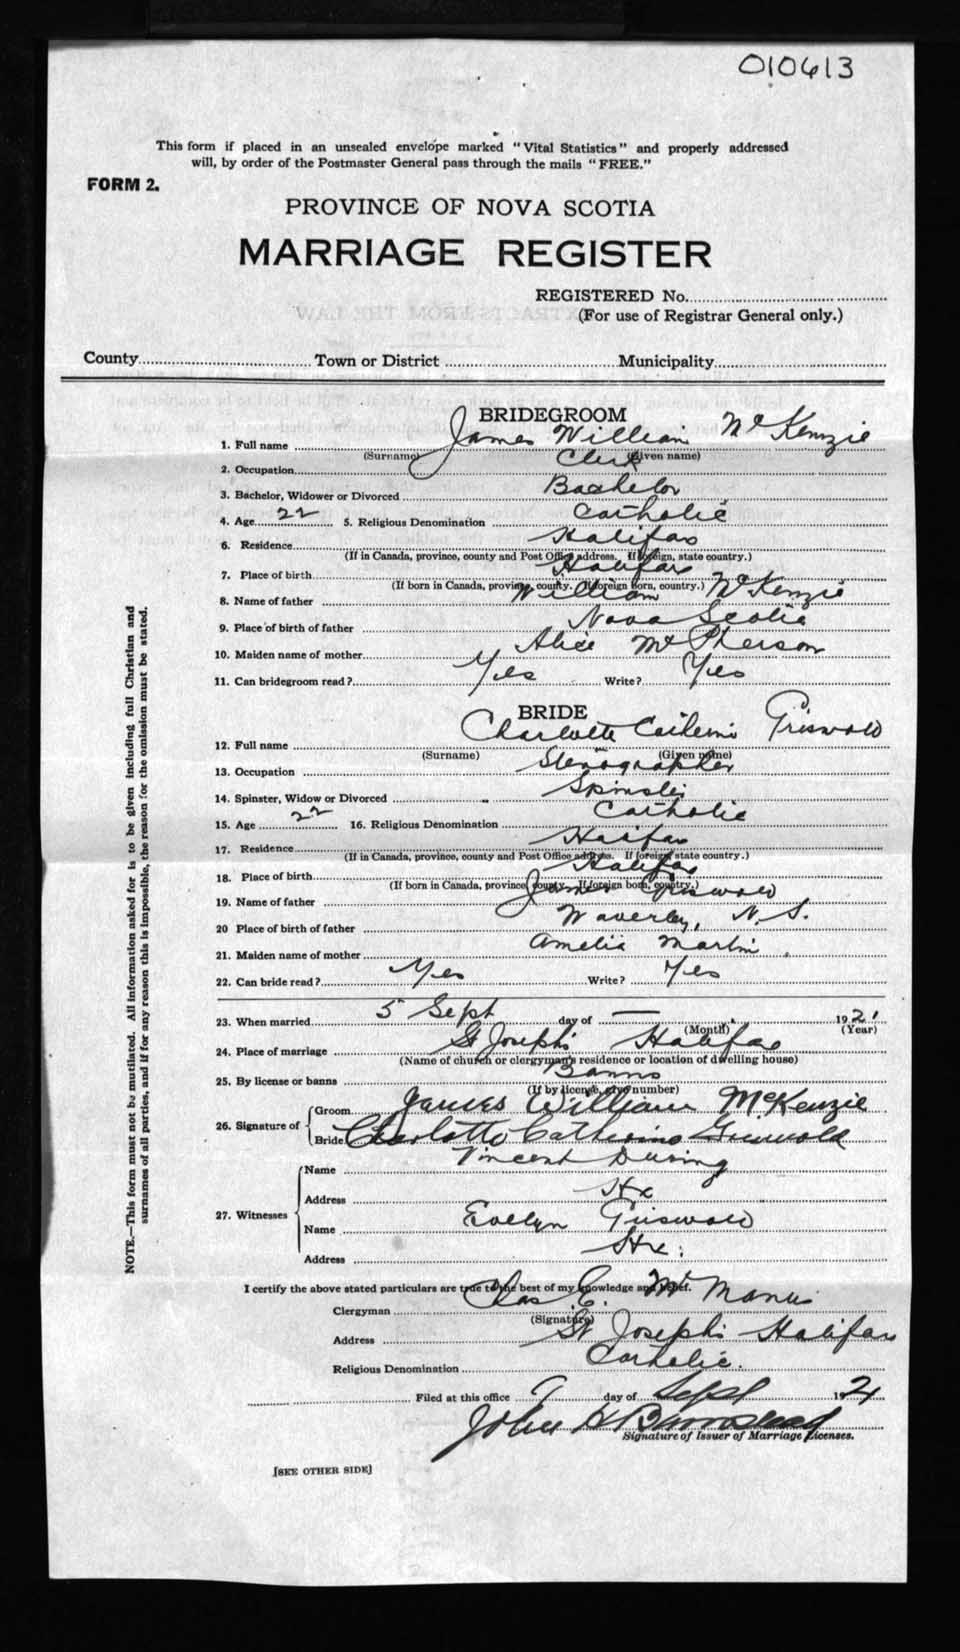 010613
This form if placed in an unsealed envelope marked "Vital Statistics" and properly addressed
will, by order of the Postmaster General pass through the mails "FREE."
FORM 2.
PROVINCE OF NOVA SCOTIA
MARRIAGE REGISTER
REGISTERED No.
(For use of Registrar General only.)
County Town or District Municipality
BRIDEGROOM
1. Full name James William McKenzie
(Surname) (Given name)
2. Occupation Clerk
3. Bachelor, Widower or Divorced Bachelor
4. Age 22 5. Religious Denomination Catholic
6. Residence Halifax
(If in Canada, province, county and Post Office address. If foreign, state country.)
7. Place of birth Halifax
(If born in Canada, province, county. If foreign born, country.)
8. Name of father William McKenzie
9. Place of birth of father Nova Scotia
10. Maiden name of mother Alice McPherson
11. Can bridegroom read? Yes Write? Yes
BRIDE
12. Full name Charlotte Catherine Griswold
(Surname) (Given name)
13. Occupation Stenographer
14. Spinster, Widow or Divorced Spinster
15. Age 22 16. Religious Denomination Catholic
17. Residence Halifax
(If in Canada, province, county and Post Office address. If foreign state country.)
18. Place of birth Halifax
(If born in Canada, province, county. If foreign born, country.)
19. Name of father James Griswold
20 Place of birth of father Waverley, N. S.
21. Maiden name of mother Amelia Martin
22. Can bride read? Yes Write? Yes
23. When married 5 Sept day of — 1921
(Month) (Year)
24. Place of marriage St Joseph's Halifax
(Name of church or clergyman's residence or location of dwelling house)
25. By license or banns Banns
(If by license, give number)
26. Signature of Groom James William McKenzie
Bride Charlotte Catherine Griswold
27. Witnesses Name Vincent During
Address Hx
Name Evelyn Griswold
Address Hx.
I certify the above stated particulars are true to the best of my knowledge and belief.
Clergyman Chas E. McManus
(Signature)
Address St Joseph's Halifax
Religious Denomination Catholic.
Filed at this office 9 day of Sept 1921
John H Barnstead
Signature of Issuer of Marriage Licenses.
[SEE OTHER SIDE]
NOTE.—This form must not be mutilated. All information asked for is to be given including full Christian and
surnames of all parties, and if for any reason this is impossible, the reason for the omission must be stated.